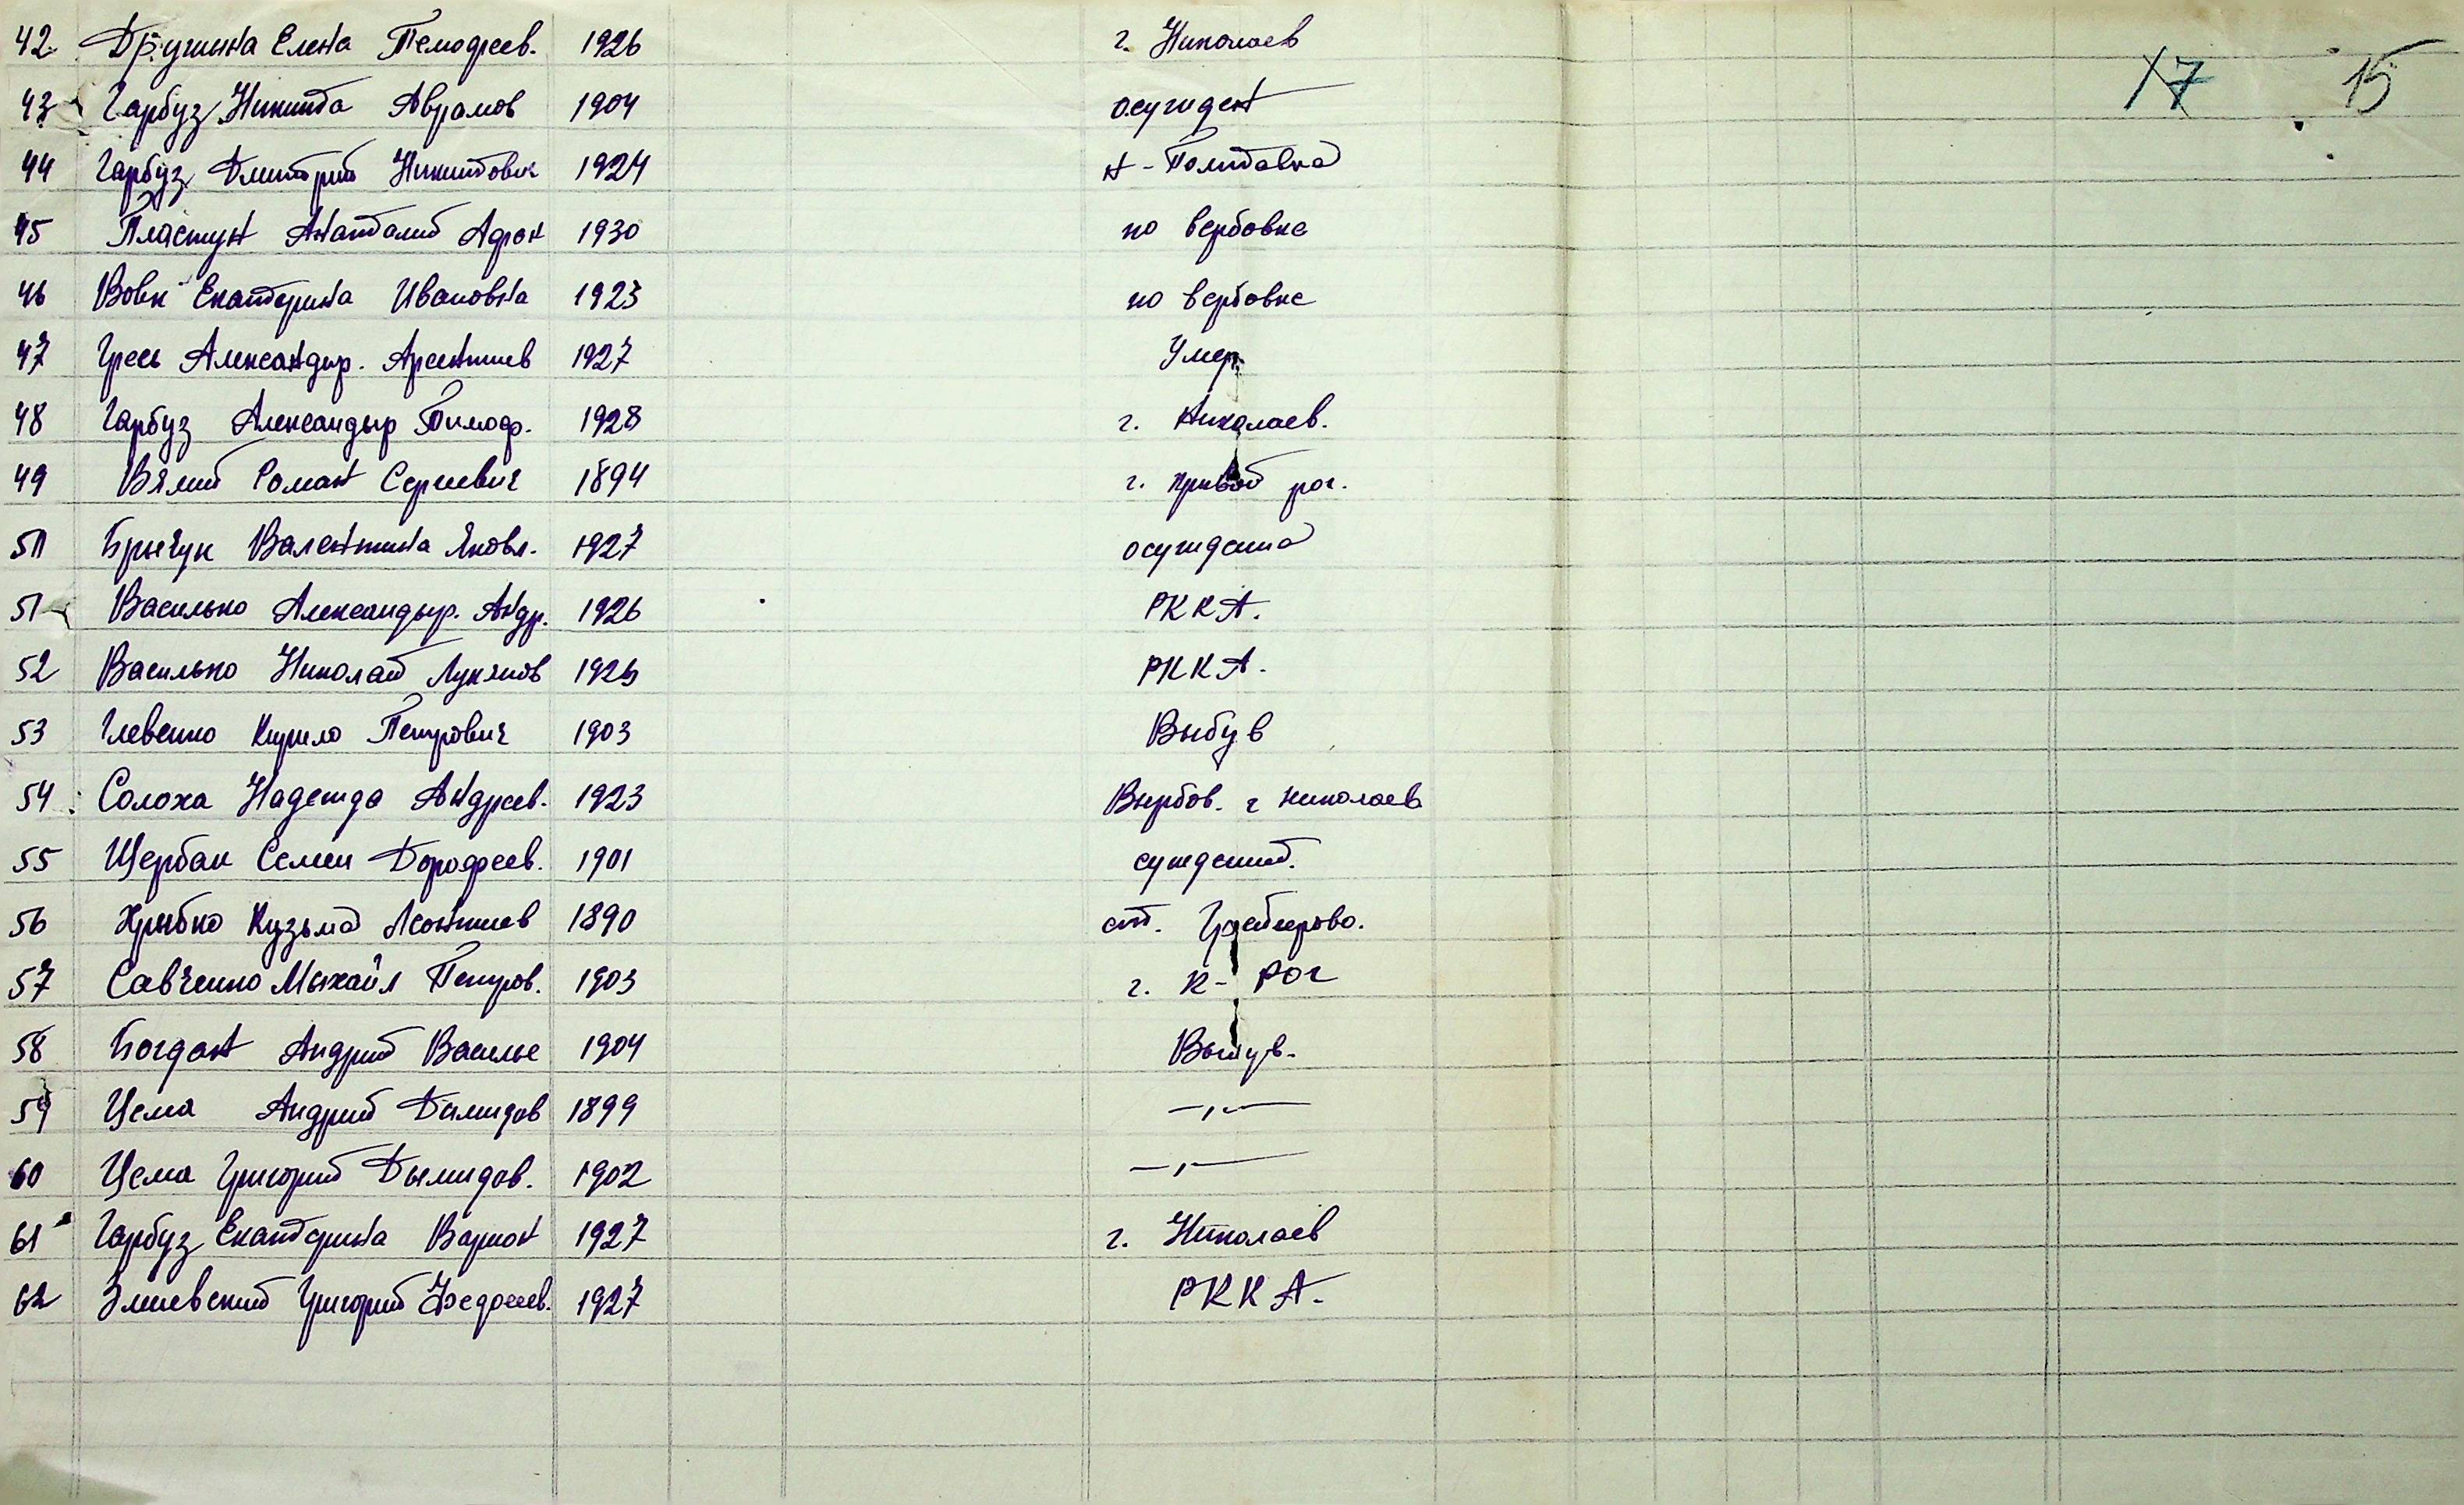 42 Дружина Елена Темофеев. 1926 г. Николаев
17 15
43 Гарбуз Никита Аврамов 1904 осужден
44 Гарбуз Дмитрий Никитович 1924 Н-Полтавка
45 Пластун Анатолий Афон 1930 по вербовке
46 Вовк Екатерина Ивановна 1923 по вербовке
47 Гресь Александр. Арентиев 1927 Умер.
48 Гарбуз Александыр Тимоф. 1928 г. Николаев.
49 Вялий Роман Сергиевич 1894 г. Кривой рог.
50 Брычук Валентина Яковл. 1927 осуждена
51 Василько Александыр. Андр. 1926 РККА.
52 Василько Николай Лукянов 1926 РККА.
53 Глевенко Кирило Петрович 1903 Выбув
54 Солоха Надежда Андреев. 1923 Вырбов. г Николаев
55 Щербак Семен Дорофеев. 1901 сужденый.
56 Хрыбко Кузьма Леонтиев 1890 ст. Грейгерово.
57 Савченко Мыхайл Петров. 1903 г. К-Рог
58 Богдан Андрий Василье 1904 Выбув.
59 Цема Андрий Дымидов 1899 —„—
60 Цема Григорий Дымидов. 1902 —„—
61 Гарбуз Екатерина Варион 1927 г. Николаев
62 Змиевский Григорий Федосеев. 1927 РККА.